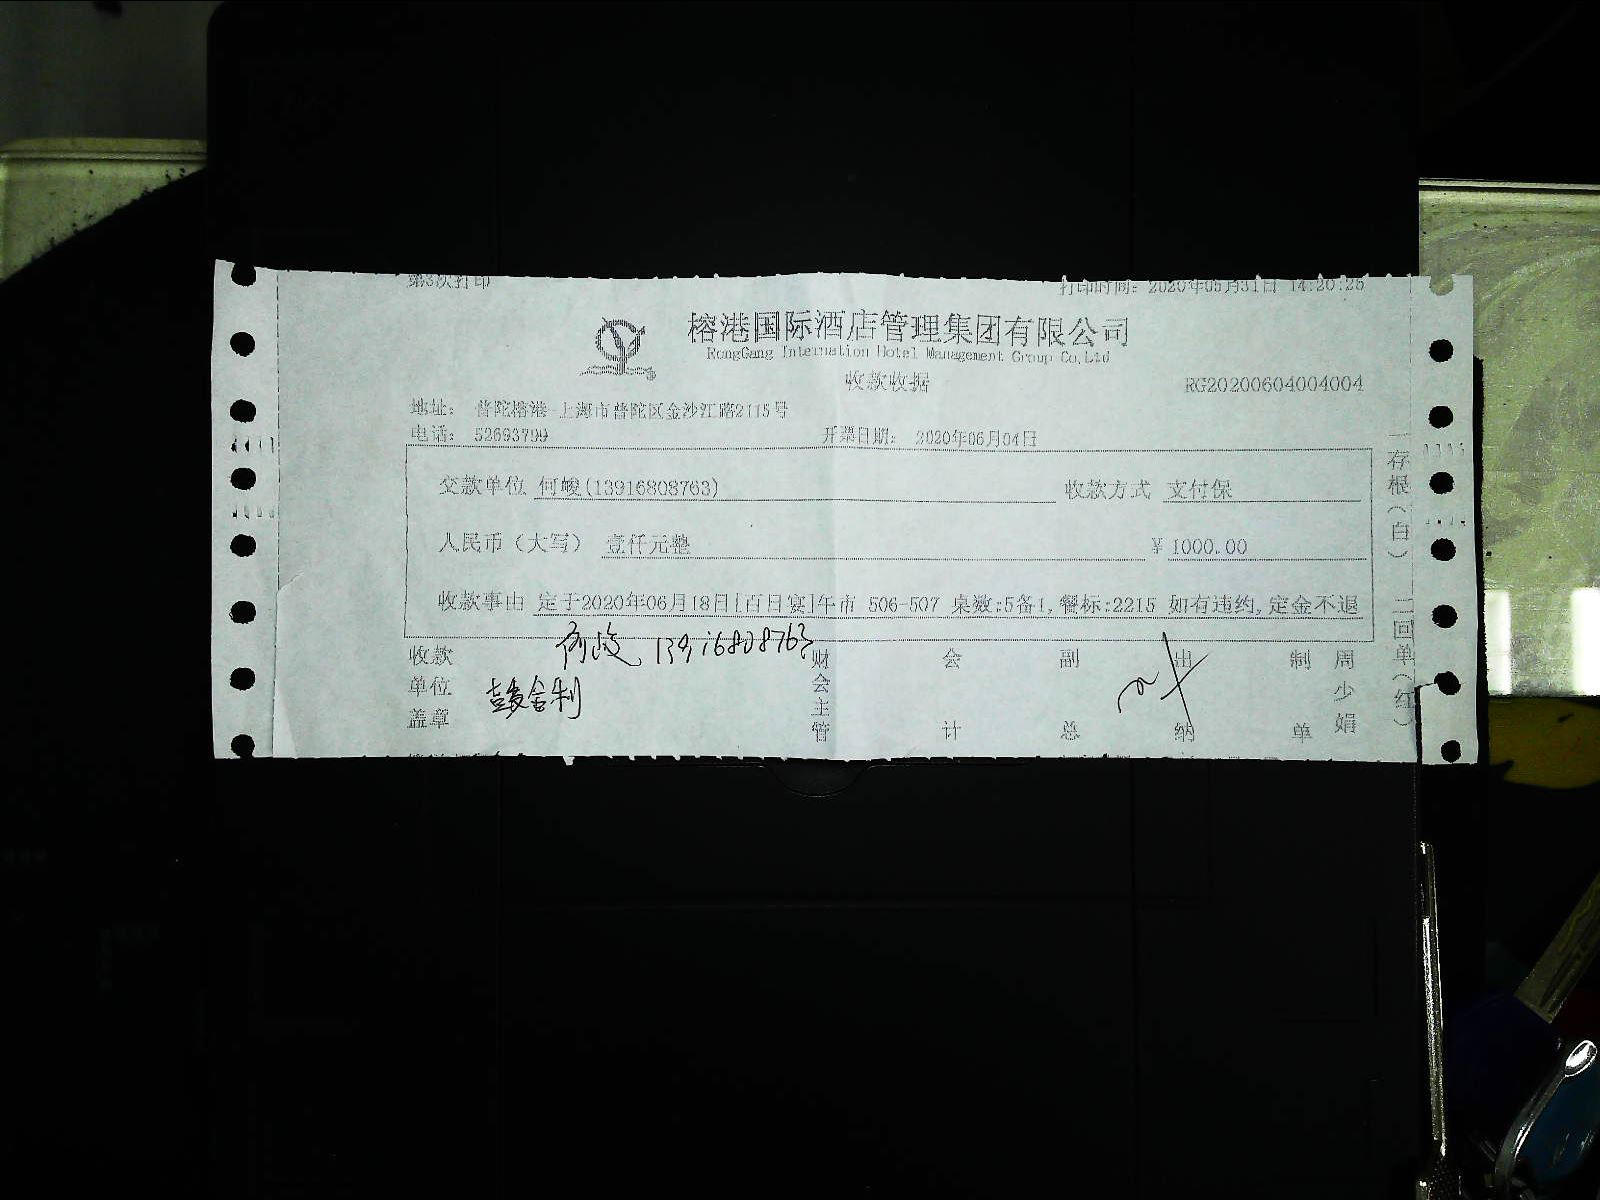 第3次打印 打印时间：2020年05月31日 14:20:26
榕港国际酒店管理集团有限公司
RongGang Internation Hotel Management Group Co.Ltd
收款收据 RG20200604004004
地址： 普陀榕港-上海市普陀区金沙江路2115号
电话： 52693799 开票日期： 2020年06月04日
交款单位 何峻(13916808763) 收款方式 支付保
人民币（大写） 壹仟元整 ¥ 1000.00
收款事由 定于2020年06月18日[百日宴]午市 506-507 桌数:5备1,餐标:2215 如有违约,定金不退
何峻 13916808763
收款单位盖章 彭金利 财会主管 会计 副总 出纳 制单 周少娟
一存根（白） 二回单（红）